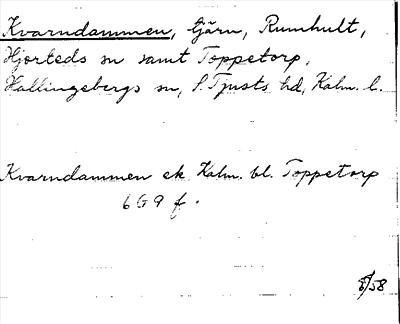 Kvarndammen, tjärn, Rumhult,
Hjorteds sn samt Toppetorp,
Hallingebergs sn, S. Tjusts hd, Kalm. l.
Kvarndammen ek Kalm. bl. Toppetorp
6 G 9 f.
8/58